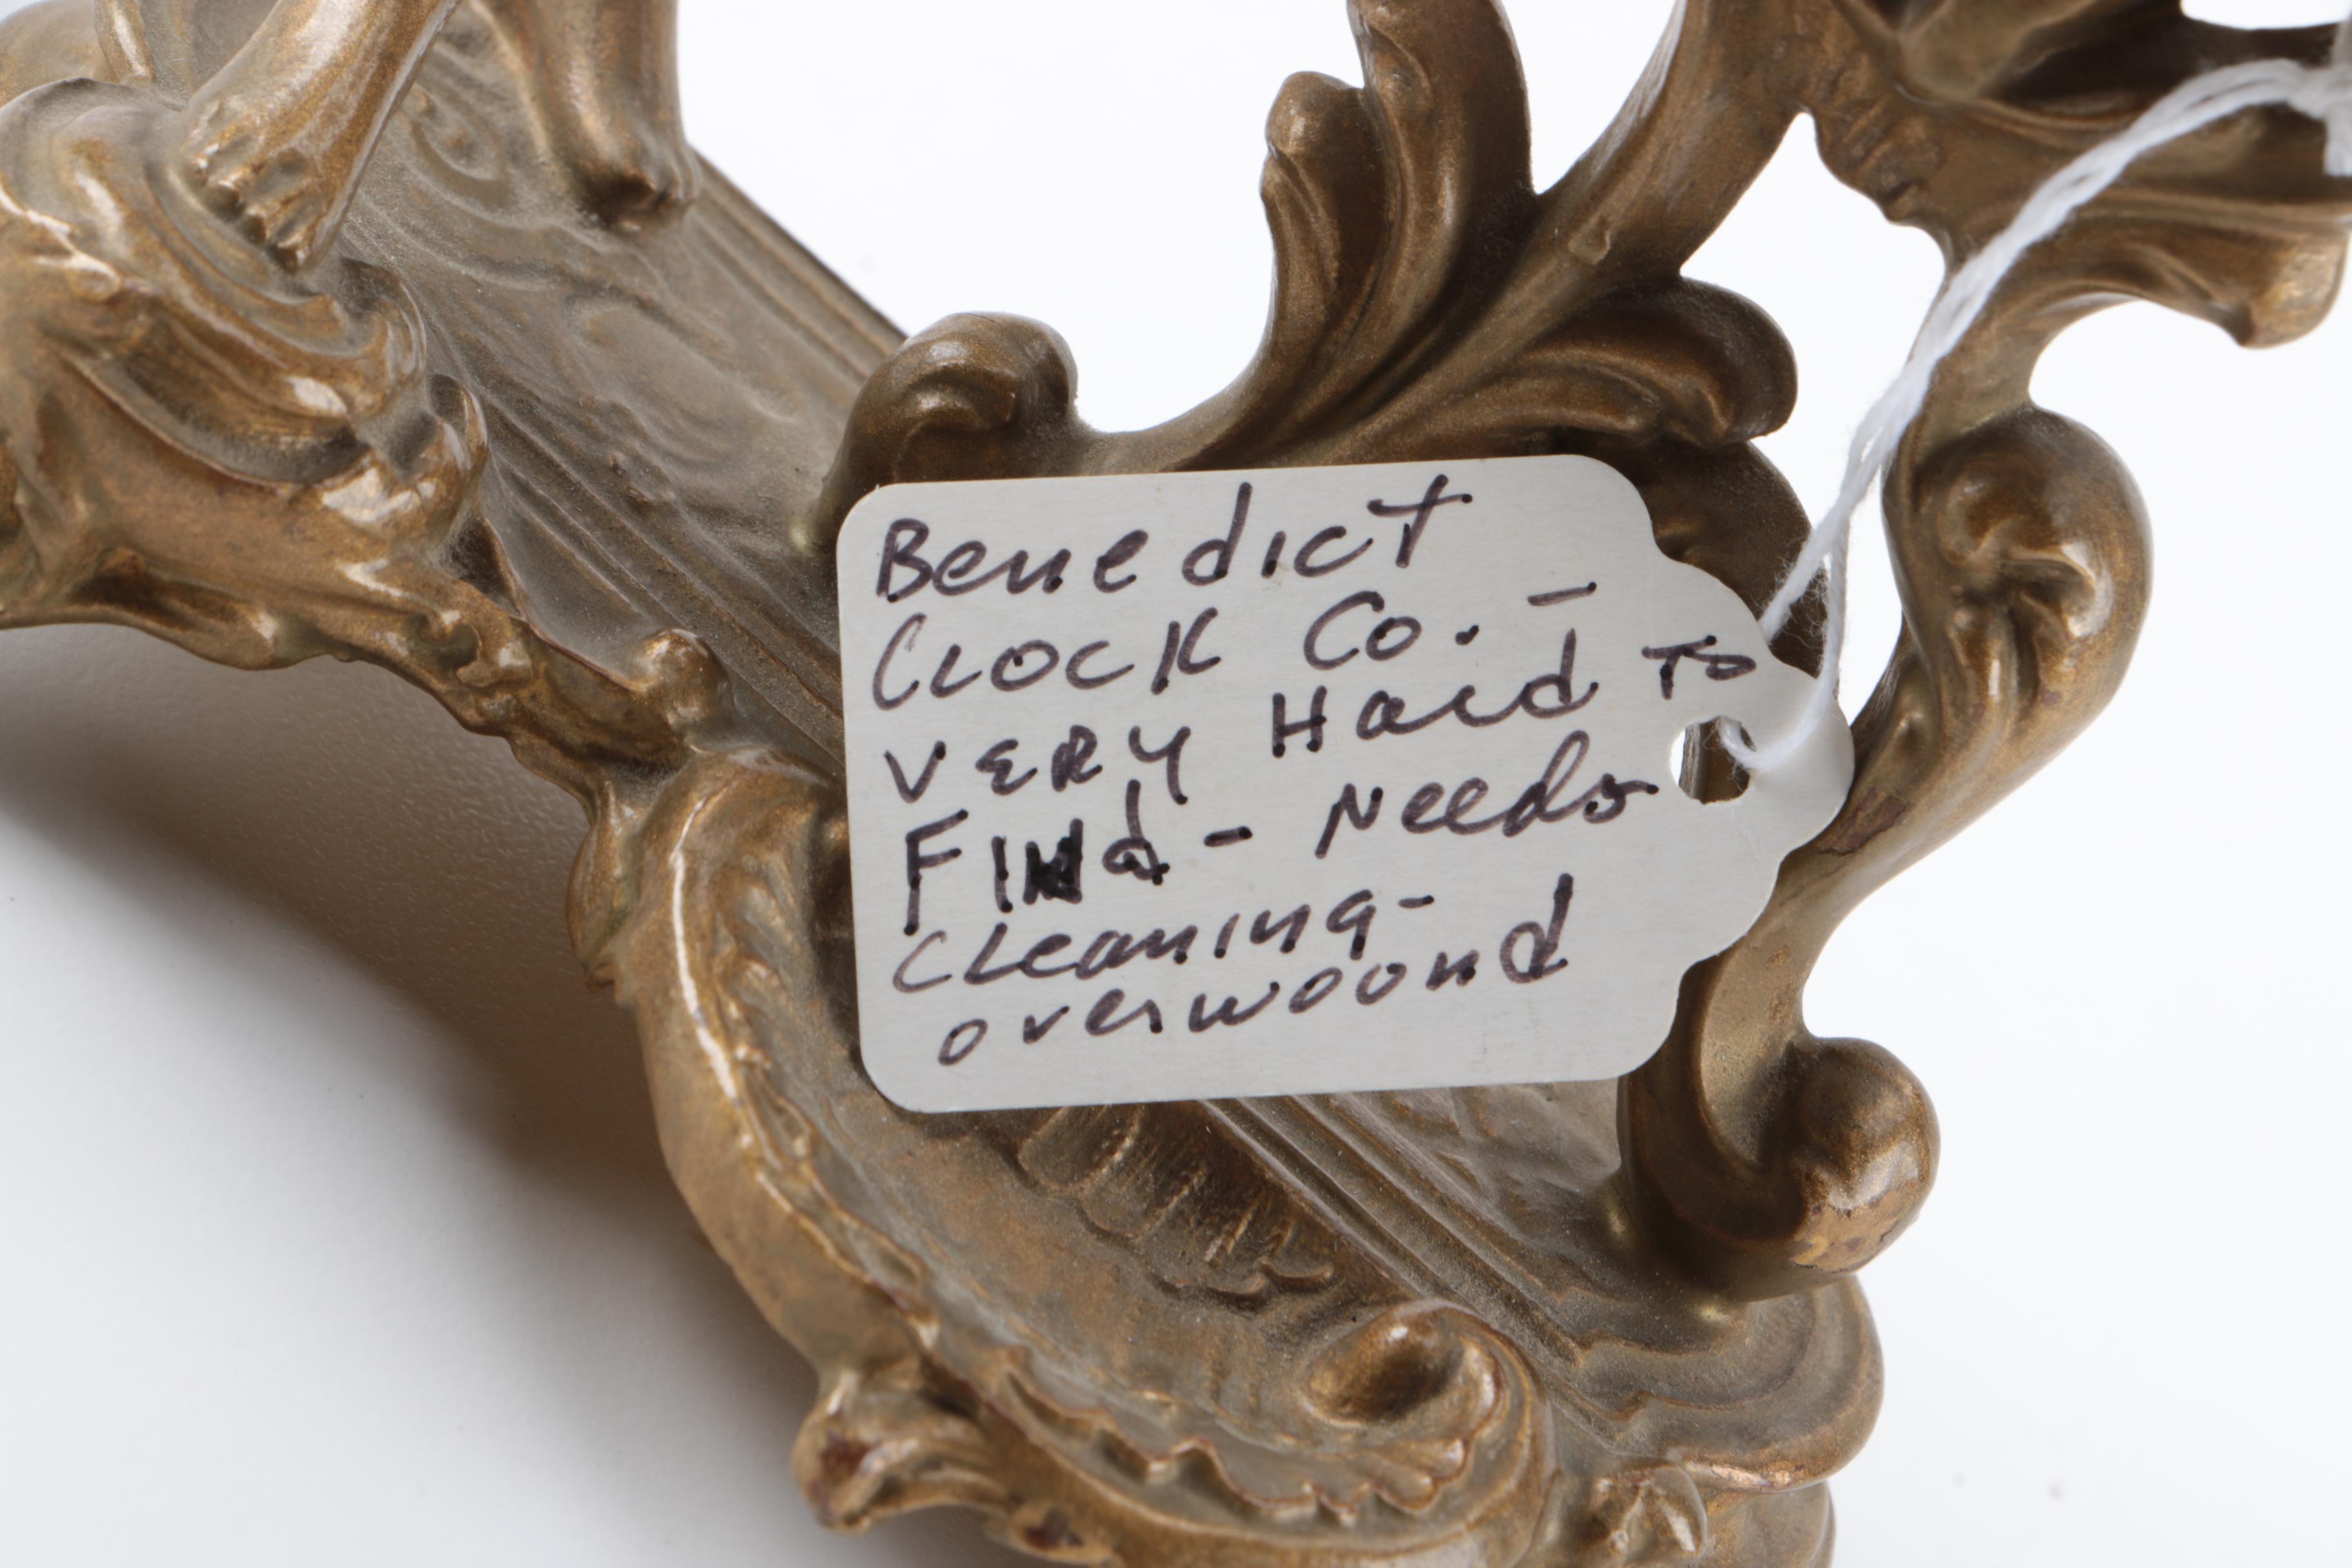 Benedict
Clock Co. -
VERY Hard To
FINd - Needs
Cleaning -
overwoond